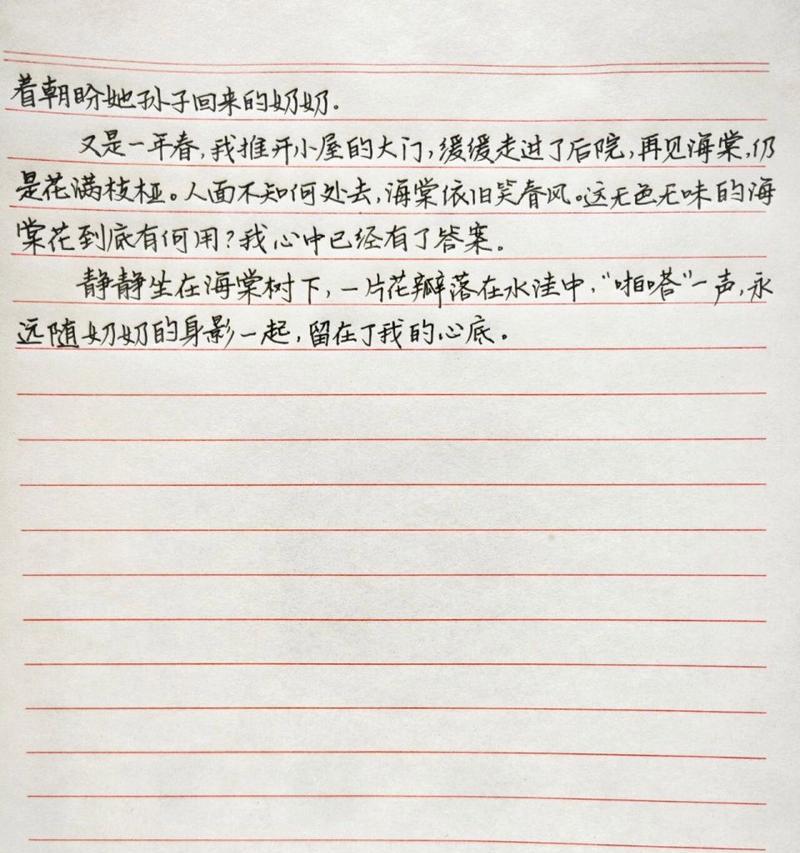 着朝盼她孙子回来的奶奶.
又是一年春,我推开小屋的大门,缓缓走过了后院,再见海棠,仍
是花满枝桠。人面不知何处去,海棠依旧笑春风。这无色无味的海
棠花到底有何用?我心中已经有了答案。
静静坐在海棠树下,一片花瓣落在水洼中,“啪嗒”一声,永
远随奶奶的身影一起,留在了我的心底。